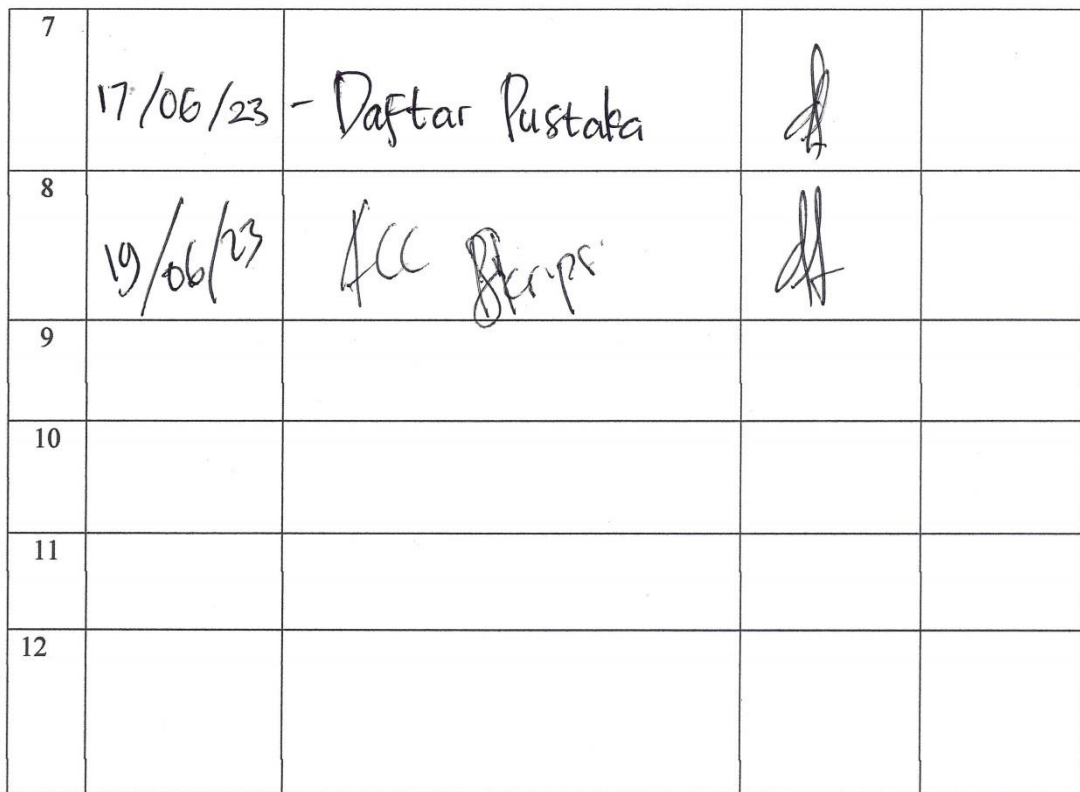 7
17/06/23 - Daftar Pustaka
8
19/06/23 ACC Skripsi
9
10
11
12